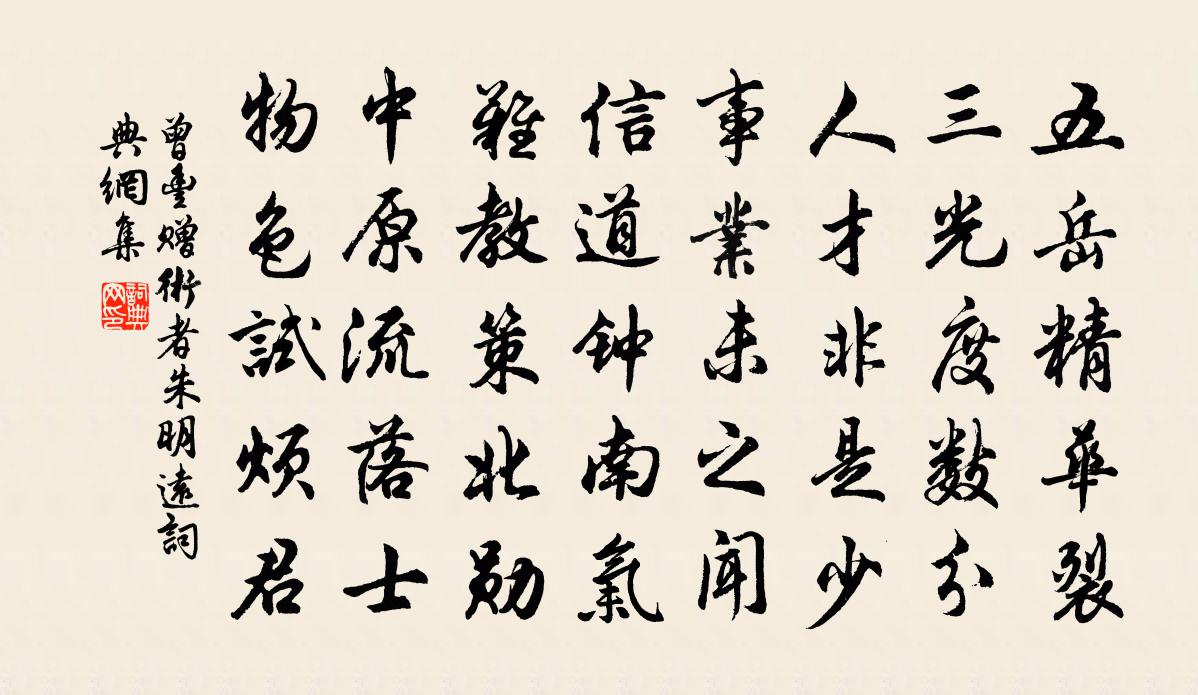 五岳精華裂
三光度數分
人才非是少
事業未之聞
信道钟南氣
難教策北勋
中原流落士
物色試煩君
曾豐贈術者朱明遠詞
典網集
詞典
网印